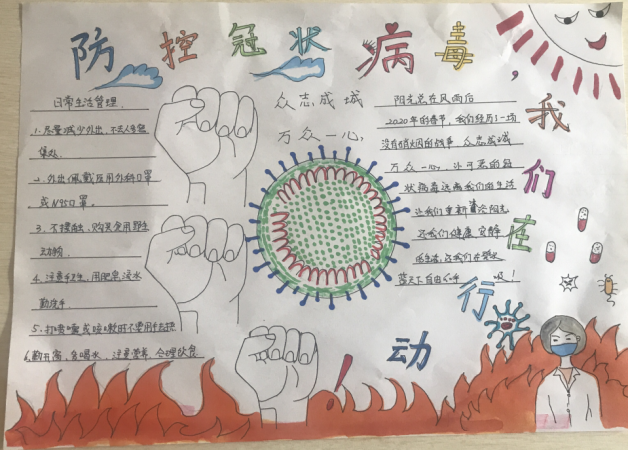 防控冠状病毒，我们在行动！
日常生活管理
1.尽量减少外出，不去人多密
集处。
2.外出佩戴医用外科口罩
或N95口罩。
3、不接触、购买食用野生
动物。
4.注意卫生，用肥皂流水
勤洗手。
5.打喷嚏或咳嗽时不要用手去捂
6.勤开窗，多喝水，注意营养，合理饮食
众志成城
万众一心，
阳光总在风雨后
2020年的春节，我们经历了一场
没有硝烟的战争，众志成城
万众一心，让可恶的冠
状病毒远离我们的生活
让我们重新
还我们健康
还我们在
蓝天下自由 呼吸！